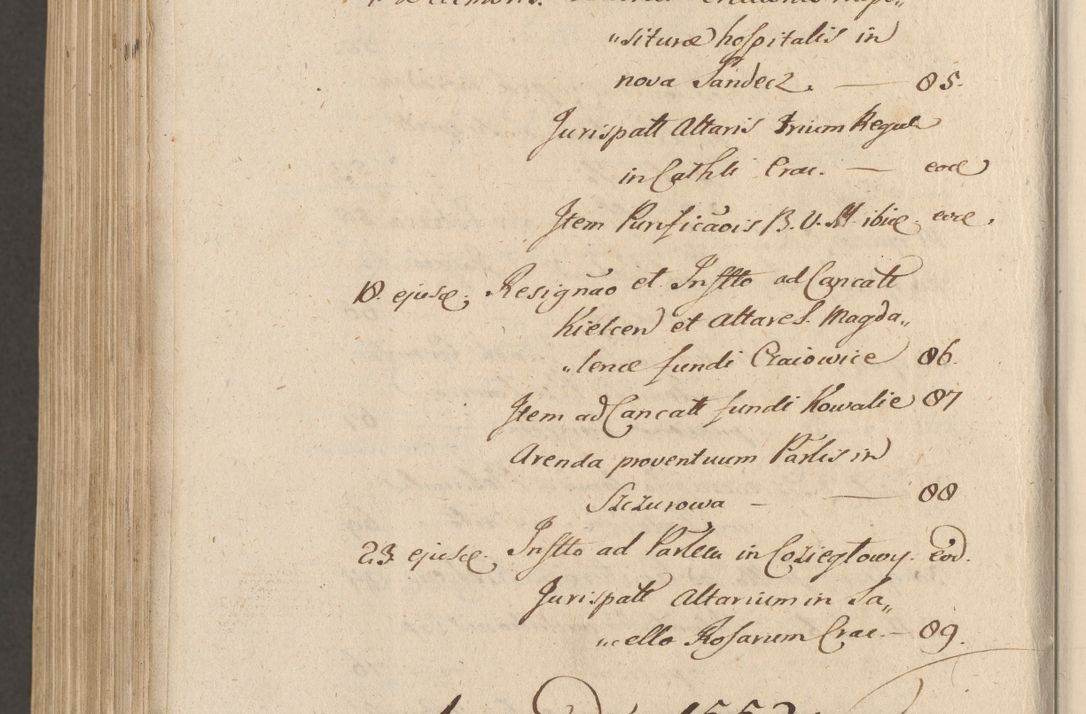 „situræ hospitalis in
nova Sandecz. — 85.
Jurispatt Altaris Trium Regum
in Cathli Crac. — eod
Item Purificaōis B. V. M. ibid. eod.
18. ejusd. Resignāo et Instto ad Cancatt
Kielcen et Altare S. Magda„
„lenæ fundi Craiowice 86.
Item ad Cancatt fundi Kowalie 87
Arenda proventuum Parlis in
Szczurowa - — 88
23 ejusd. Instto ad Parlem in Coziegłowy. eod.
Jurispatt Altarium in Sa„
„cello Rosarum Crac. — 89.
1552